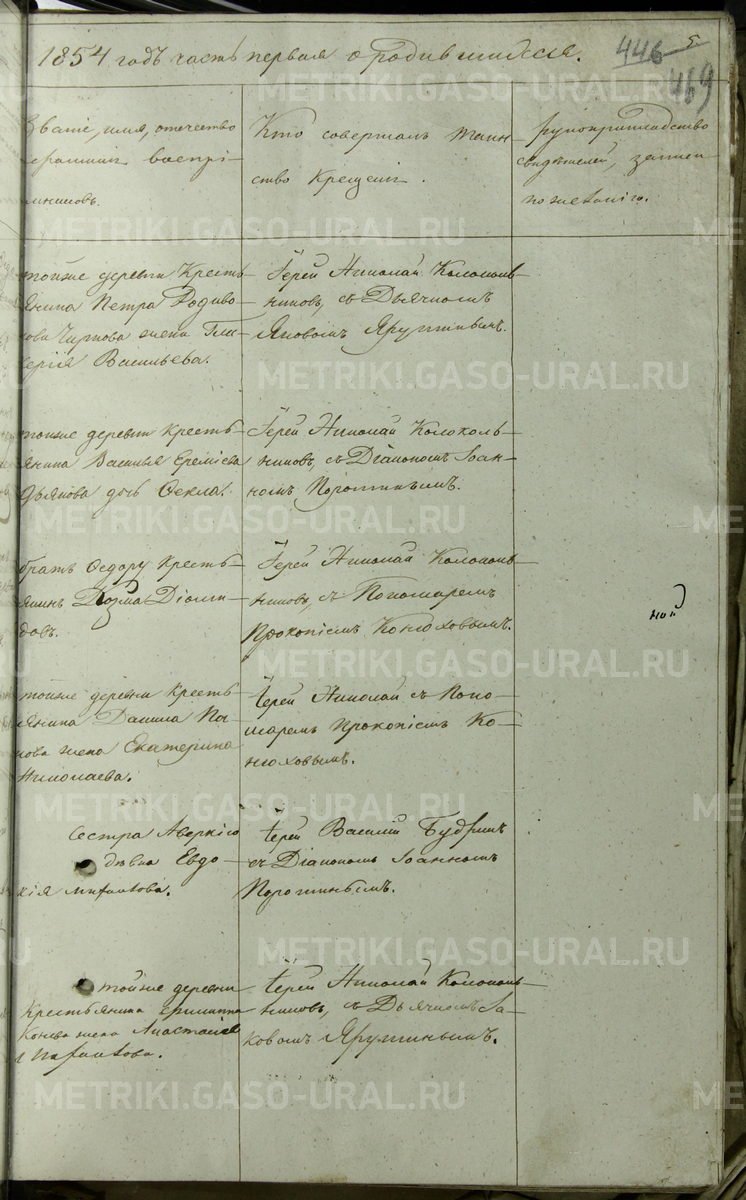 1854 годъ часть первая о родившихся.
446 5
469
Званіе, имя, отечество
воспрі-
емниковъ.
Кто совершалъ таин-
ство Крещенія.
Рукоприкладство
свидѣтелей, записи
по желанію.
тойже деревни Кресть-
янина Петра Родіво-
нова жена Гли-
керія Васильева.
Іерей Николай Колоколь-
никовъ, съ Дьячкомъ
Яковомъ Яруткинымъ.
тойже деревни Кресть-
янина Василья Ереміева
дочь Ѳекла.
Іерей Николай Колоколь-
никовъ, съ Діакономъ Іоан-
номъ Порошинымъ.
братъ Ѳедору Кресть-
янинъ Козма Діоми-
довъ.
Іерей Николай Колоколь-
никовъ, съ Пономаремъ
Прокопіемъ Конюховымъ.
тойже деревни Кресть-
янина Данила Па-
нова жена Екатерина
Николаева.
Іерей Николай съ Поно-
маремъ Прокопіемъ Ко-
нюховымъ.
сестра Аверкію
дѣвка Евдо-
кія
Іерей Василій Будринъ
съ Діакономъ Іоанномъ
Порошинымъ.
тойже деревни
Крестьянина Филиппа
Конева жена Анастасія
Іерей Николай Колоколь-
никовъ, съ Дьячкомъ Іа-
ковомъ Яруткинымъ.
METRIKI.GASO-URAL.RU